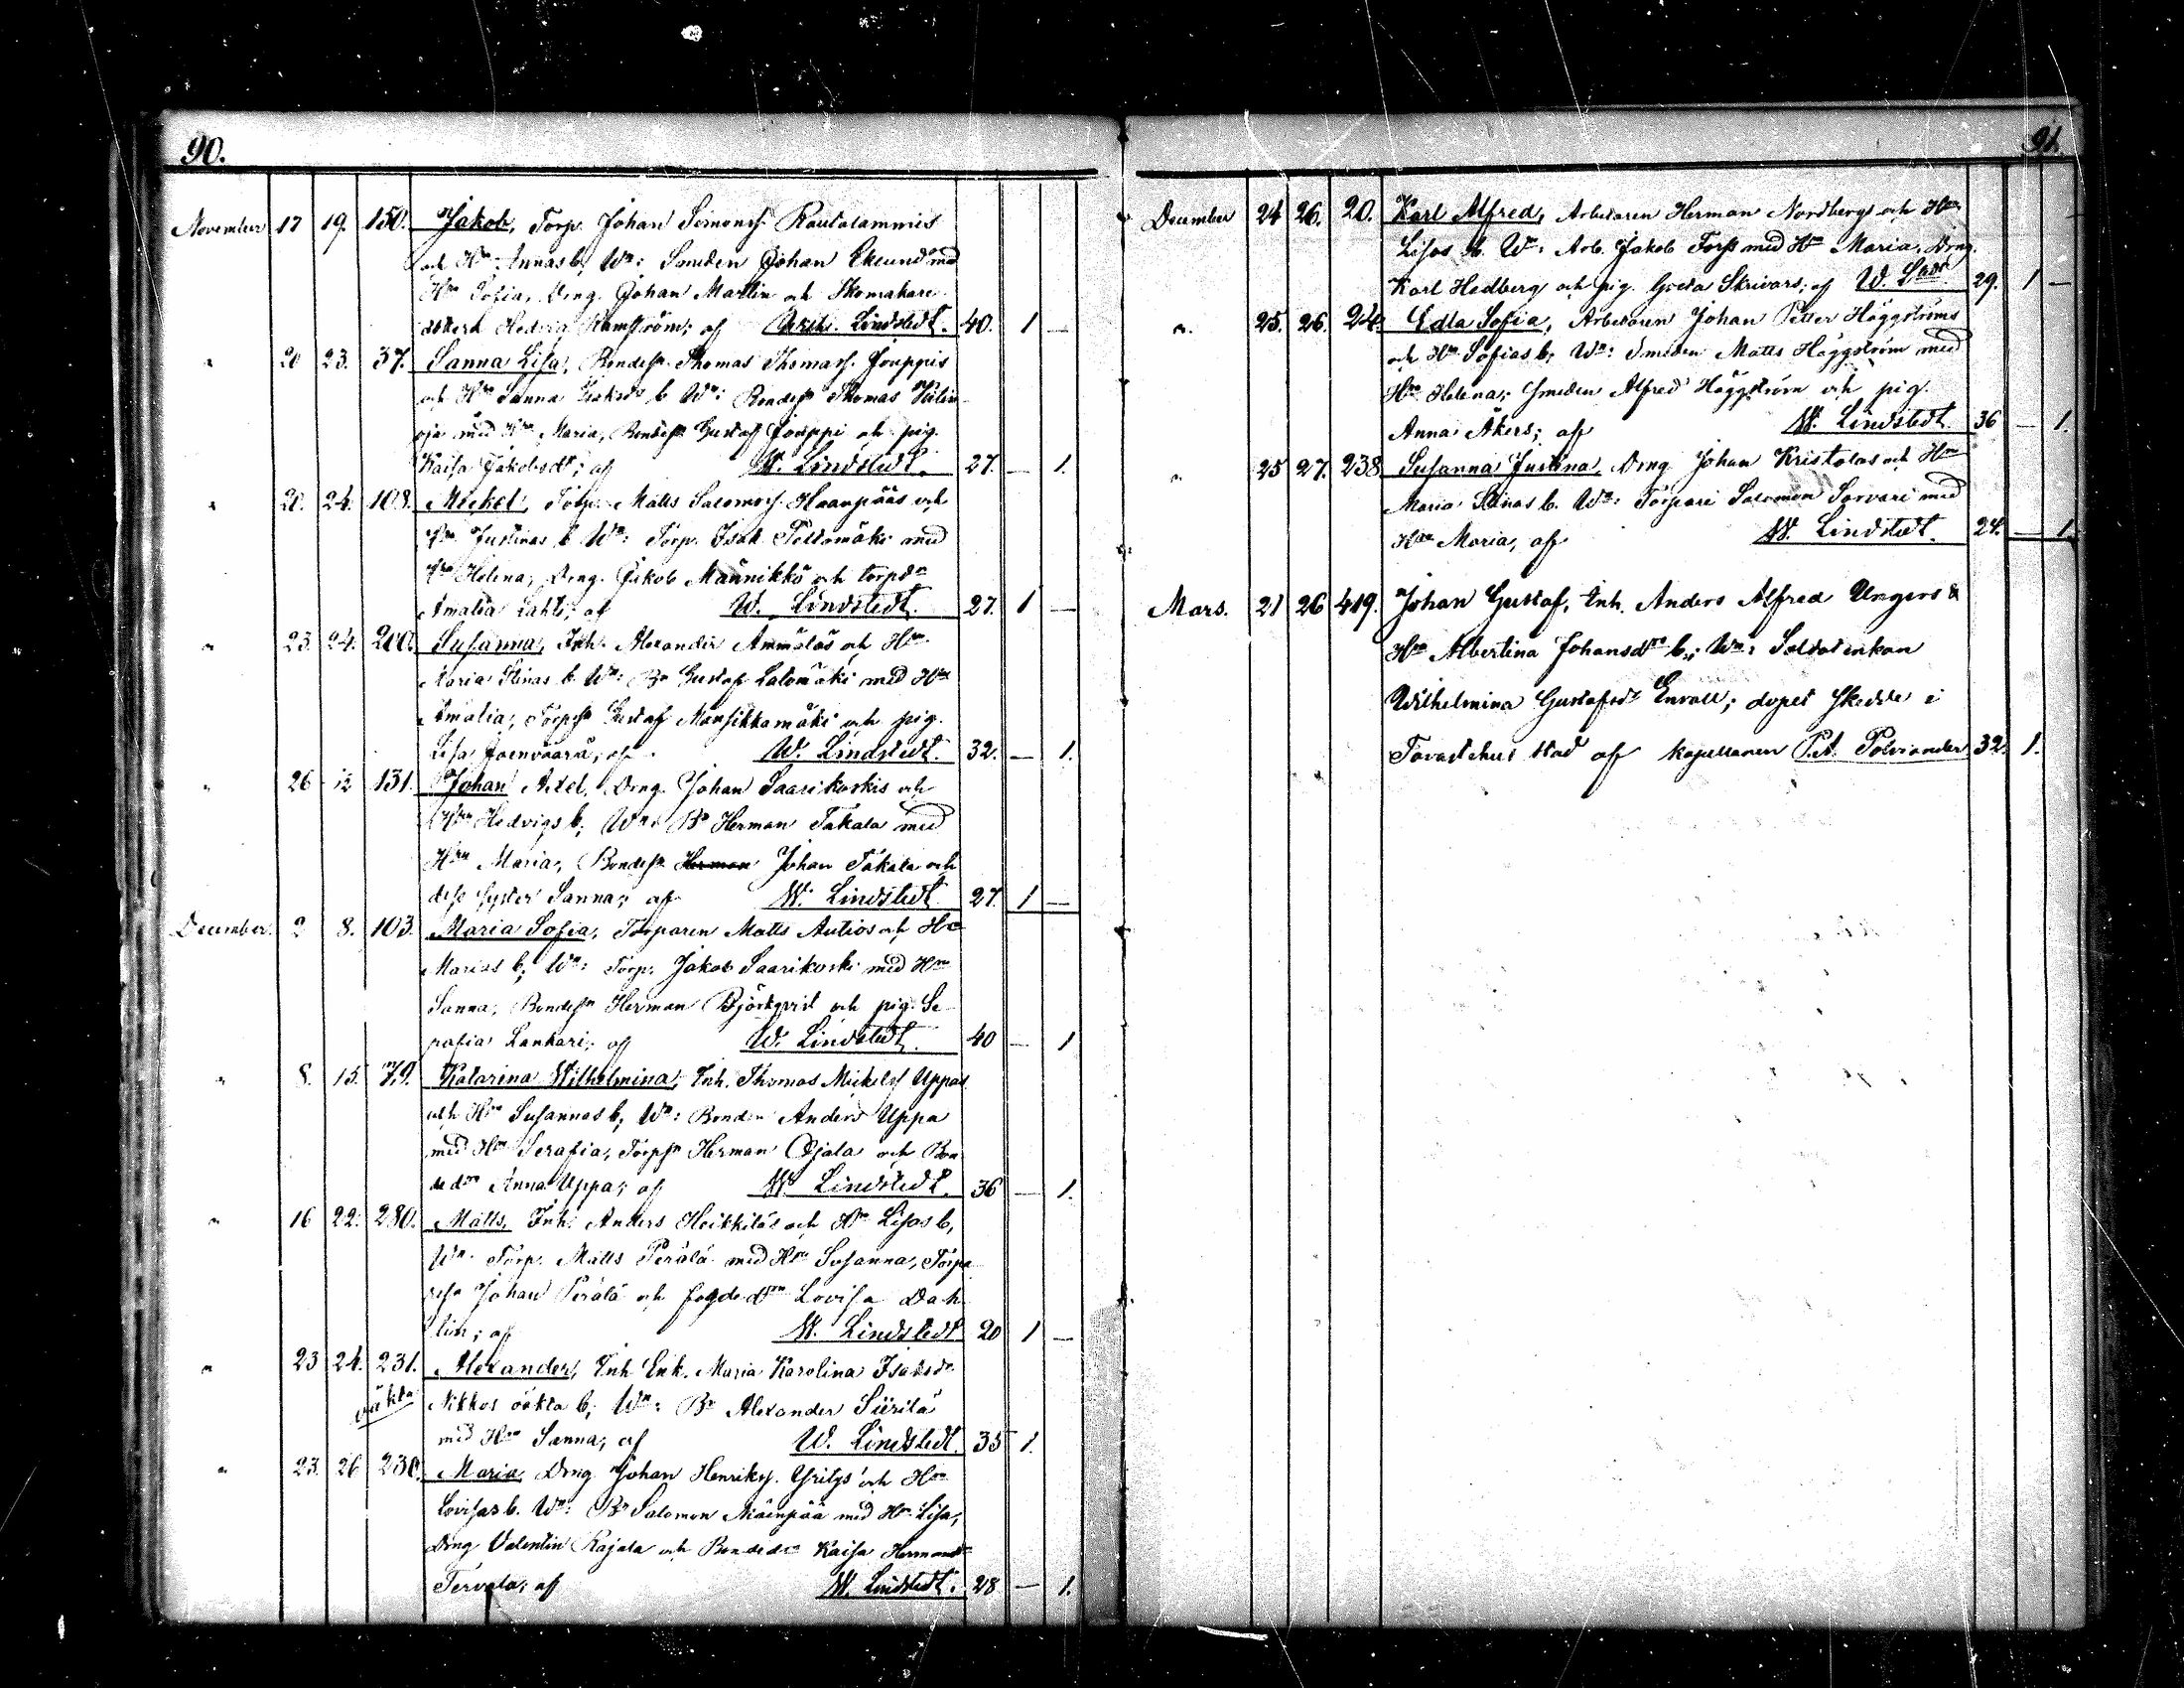 90.
November 17 19. 150. Jakob, Torp. Johan Simonss. Rautalammis
och Hu Annas b; Wn: Smeden Johan Eklund med
Hu Sofia, Dng. Johan Mattlin och Skomakare
Hedvig Ramström; af Lindstedt. 40. 1 —
" 20 23. 37. Sanna Lisa, Bondesn Thomas Thomass. Jouppis
och Hu Sanna b. Wn: Bondesn Thomas
oja med Hu Maria, Bondesn Gustaf Jouppi och pig.
Kaisa Jakobsdr; af W. Lindstedt. 27. — 1.
" 20. 24. 108. Mickel, Torp. Matts Salomoss. Haanpääs och
Hu Justinas b. Wn: Torp. Isak Peltomäki med
Hu Helena, Dng. Jakob Männikkö och torpdr
Amalia Lahti; af W. Lindstedt. 27. 1 —
" 23. 24. 200. Susanna, Inh. Alexander Ammälas och Hu
Maria Stinas b. Wn: Bn Gustaf Lalomäki med Hu
Amalia; Torpsn Gustaf Mansikkamäki och pig.
Lisa Joenvaara; af W. Lindstedt. 32. — 1.
" 26 12 131. Johan Axel, Dng. Johan Saarikoskis och
Hu Hedvigs b; Wn: Bn Herman Takala med
Hu Maria; Bondesn Herman Johan Takala och
dess syster Sanna; af W. Lindstedt 27. 1 —
December. 2 8. 103. Maria Sofia, Torparen Matts Autios och Hu
Marias b; Wn: Torp. Jakob Saarikoski med Hu
Sanna, Bondesn Herman Björkqvist och pig. Se
rafia Lankari; af W. Lindstedt. 40 — 1
" 8. 15. 79. Katarina Wilhelmina, Inh. Thomas Mickelss Uppas
och Hu Susannas b; Wn: Bonden Anders Uppa
med Hu Serafia, Torpsn Herman Ojala och Bon
dedr Anna Uppa; af W. Lindstedt. 36 — 1.
" 16 22. 280. Matts, Inh. Anders Heikkiläs och Hu Lisas b,
Wn Torp. Matts Perälä med Hu Susanna, Torpa
resn Johan Perälä och fogdedtrn Lovisa Dah
lin; af W. Lindstedt 20 1 —
" 23 24. 231. Alexander, Inh Enk. Maria Karolina Isaksdr
oäkta Nikkos oäkta b; Wn: Bn Alexander Siirilä
med Hu Sanna; af W. Lindstedt. 35 1.
" 23. 26 230. Maria, Dng Johan Henrikss. Yrilys och Hu
Lovisas b. Wn: Bn Salomon Mäenpää med Hu Lisa,
Dng Valentin Rajala och Bondedr Kaisa Hermansdr
Tervala; af W. Lindstedt. 28 — 1.
91.
December 24 26. 20. Karl Alfred, Arbetaren Herman Nordbergs och Hu
Lisas b. Wn: Arb. Jakob Forss med Hu Maria, Dng.
Karl Hedberg och pig. Greta Skrivars; af W. Lstdt 29. 1 —
" 25. 26. 24. Edla Sofia, Arbetaren Johan Petter Häggströms
och Hu Sofias b; Wn: Smeden Matts Häggström med
Hu Helena; Smeden Alfred Häggström och pig.
Anna Åkers; af W. Lindstedt. 36 — 1.
" 25 27. 238 Susanna Justina, Dng. Johan Kristolas och Hu
Maria Stinas b. Wn: Torpari Salomon Sorvari med
Hu Maria, af W. Lindstedt. 24. — 1.
Mars. 21 26 419. Johan Gustaf, Inh. Anders Alfred Ungers &
Hu Albertina Johansdr b; Wn: Soldatenkan
Wilhelmina Gustafsdr Envall; dopet skedde i
Tavastehus stad af kapellanen Pet. Polviander 32. 1.